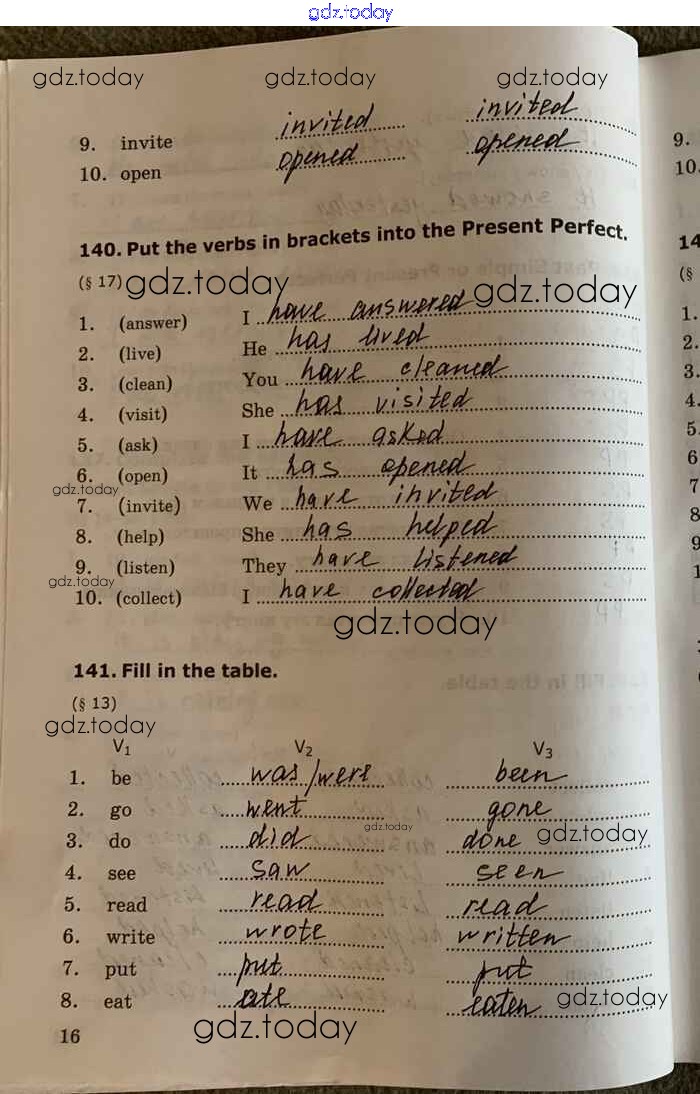 gdz.today
gdz.today gdz.today gdz.today
9. invite invited invited
10. open opened opened
140. Put the verbs in brackets into the Present Perfect.
(§ 17) gdz.today gdz.today
1. (answer) I have answered
2. (live) He has lived
3. (clean) You have cleaned
4. (visit) She has visited
5. (ask) I have asked
6. (open) It has opened
gdz.today
7. (invite) We have invited
8. (help) She has helped
9. (listen) They have listened
gdz.today
10. (collect) I have collected
gdz.today
141. Fill in the table.
(§ 13)
gdz.today
V1 V2 V3
1. be was/were been
2. go went gone
gdz.today
3. do did done gdz.today
4. see saw seen
5. read read read
6. write wrote written
7. put put put
8. eat ate eaten gdz.today
16 gdz.today
9.
10.
14
(§
1.
2.
3.
4.
5.
6
7
8
9
1